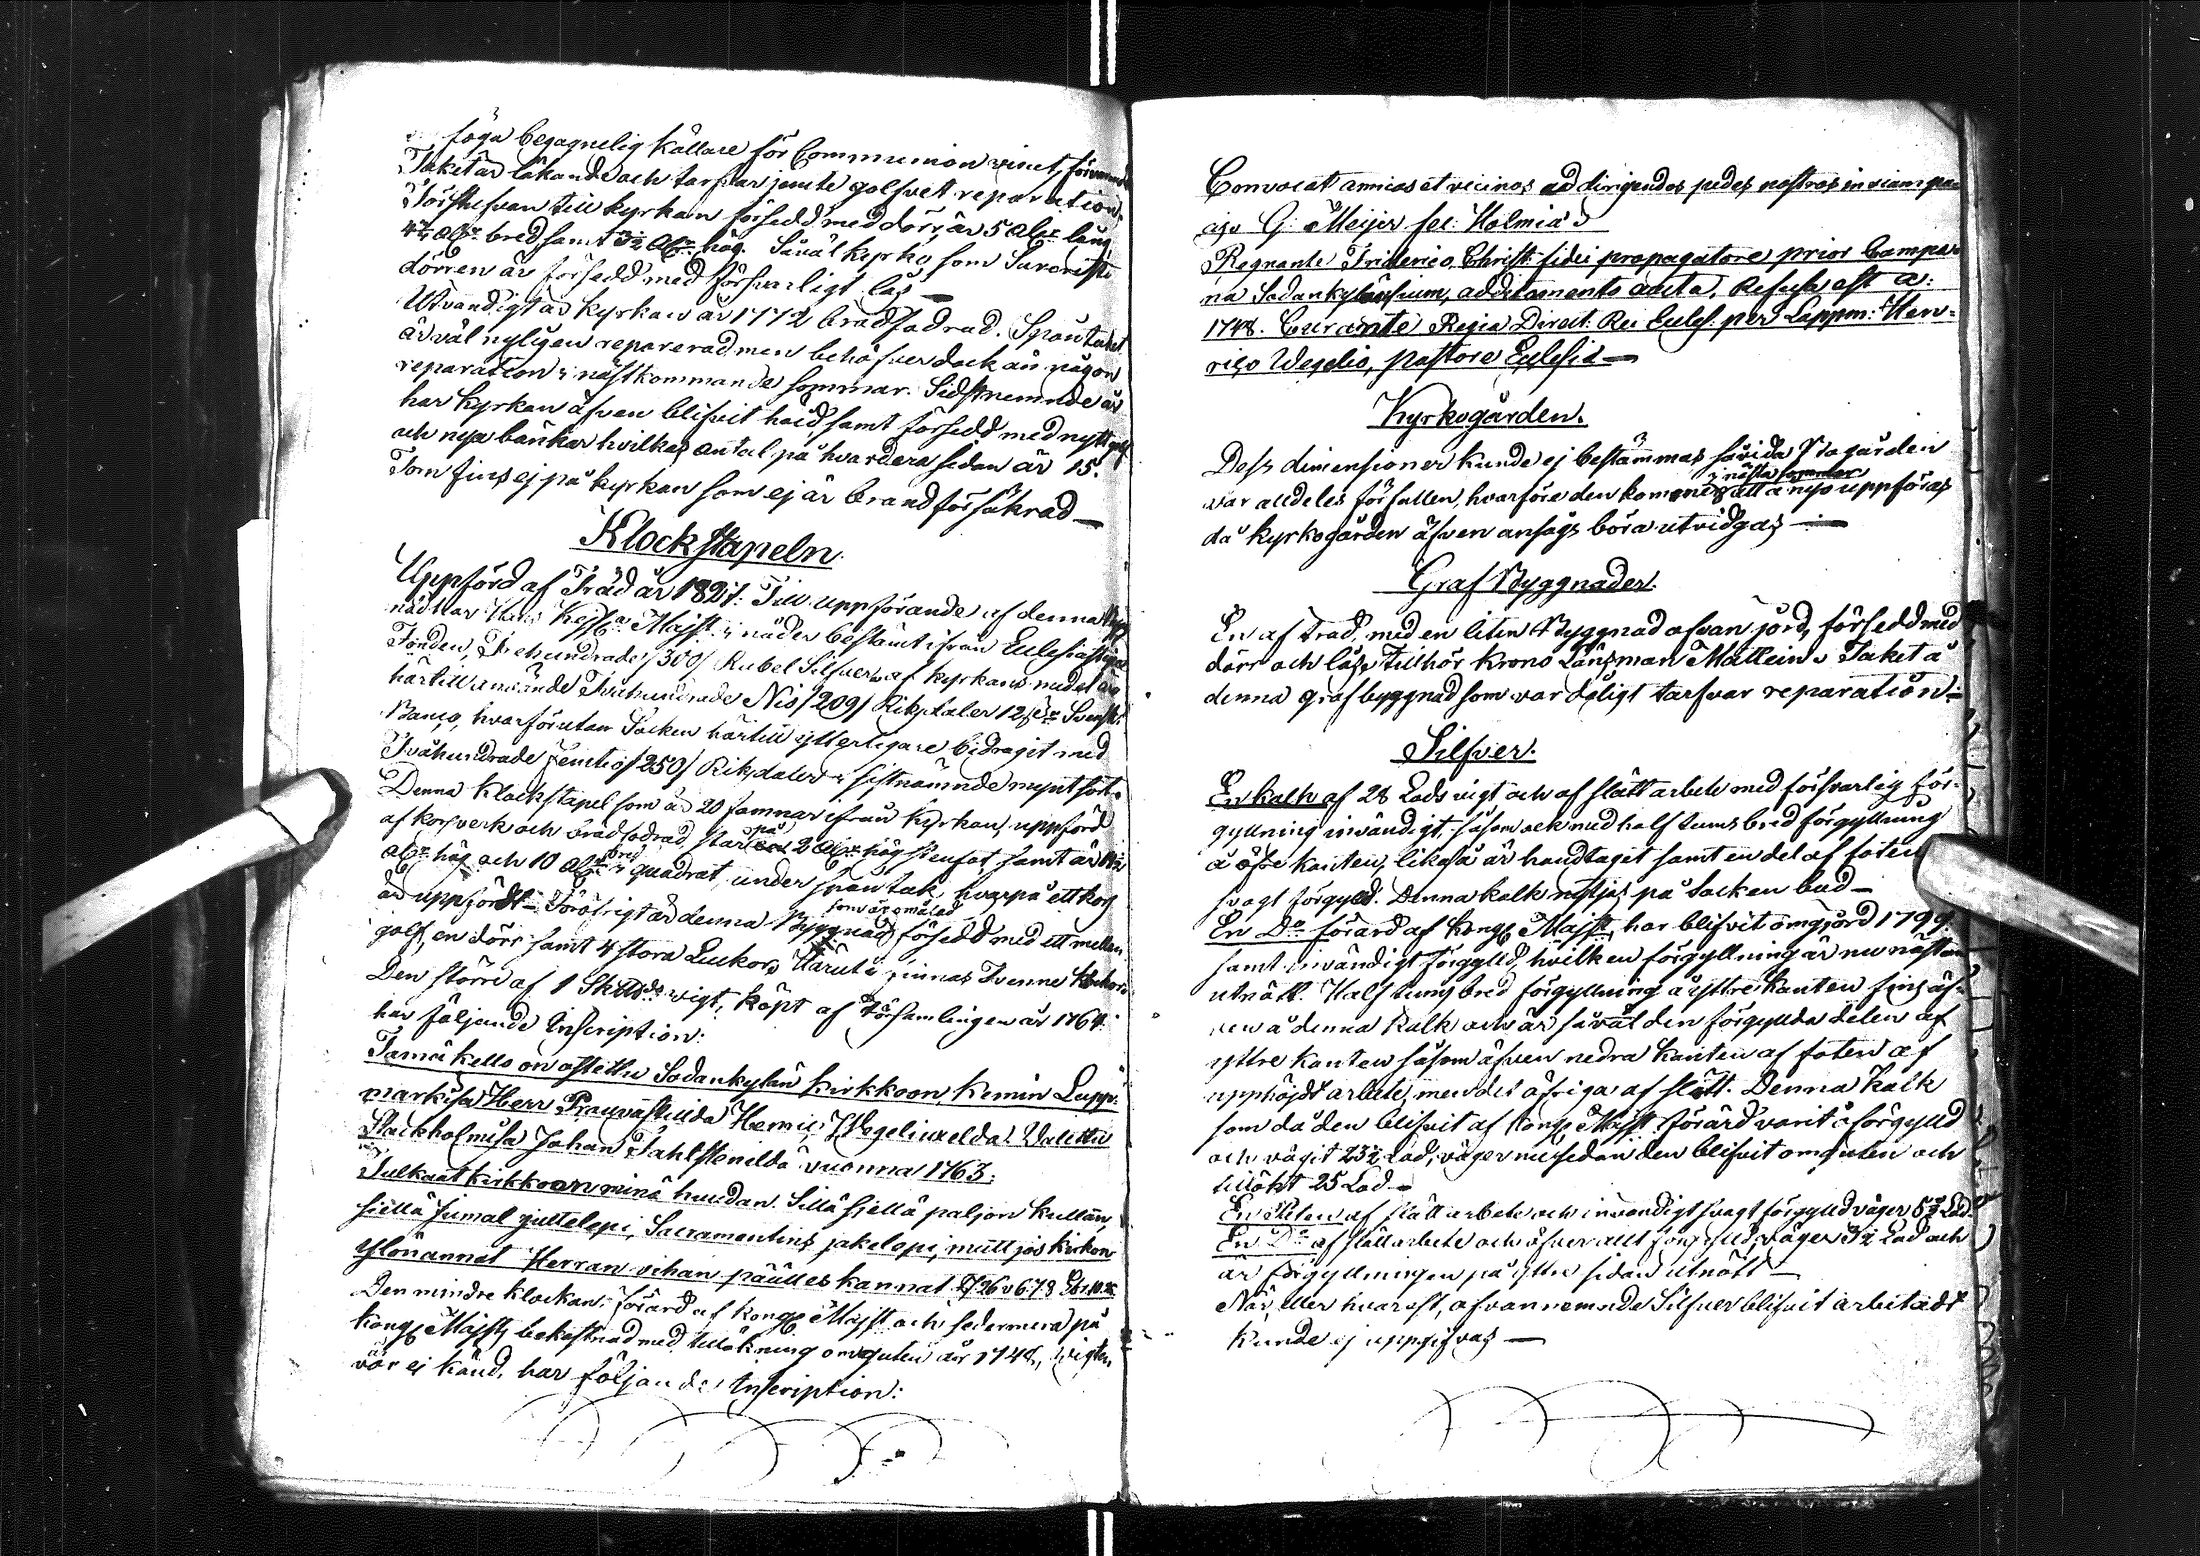 föga begagnelig källare för Communion vinet,
Taket är läkande och tarfvar jemte golfvet reparation.
Förstufvan till kyrkan försedd med dörr, är 5 Alnr lång
4½ Alnr bred samt 3½ Alnr hög. Såväl kyrko som Sacristi
dörren är försedd med försvarligt lås —
Utvändigt är kyrkan år 1772 brädfodrad. Spåntaket
är väl nyligen reparerad men behöfver dock än någon
reparation i nästkommande sommar. Sidstnemnde år
har kyrkan äfven blifvit höjd samt försedd med nytt golf
och nya bänkar hvilkas antal på hvardera sidan är 15.
Torn fins ej på kyrkan som ej är brandförsäkrad —
Klockstapeln.
Uppförd af Träd år 1827. Till uppförande af denna bygg
nad har Hans Kejsa Majst i nåder bestämt ifrån Eclesiastique
Fonden, Trehundrade /300/ Rubel Silfver, af kyrkans medel äro
härtill använde Tvåhundrade Nio /209/ Riksdaler 12 Svensk
Banco, hvarförutan Socken härtill ytterligare bidragit med
Tvåhundrade femtio /250/ Riksdaler i sistnämnde myntsort.
Denna klockstapel som är 20 famnar ifrån kyrkan, uppförd
af korsverk och brädfodrad, står på 2 Alnr hög stenfot, samt är
alnr hög och 10 Alnr bred i quadrat under spån tak hvarpå ett kors
är uppfördt — Föröfrigt är denna Byggnad som är omålad försedd med ett mellan
golf, en dörr samt 4 stora Luckor. Häruti finnas Tvenne klockor
Den större af 1 Skeppds vigt, köpt af Församlingen år 1764.
har följande Inscription:
Tämä kello on ostettu Sodankylän kirkkoon, Kemin Lapp-
markisa Herr Prouvastilda Henric Wegeliuxelda. Valettu
Stockholmisa Johan Fahlstenilda vuonna 1763:
Tulkaat kirkkoon minä huudan. Sillä siellä paljon kullan
siellä Jumal juttelepi, Sacramentins jakelepi, mutt jos kirkon
ylönannat Herran vihan päälles kannat. Ps 26 v 6.7.8
Den mindre klockan, förärd af kongl Majst och sedermera på
kongl Majsts bekostnad med tillökning omgjuten år 1748, wigten
vär ej känd, har följande Inscription:
Convocat amicos et vicinos ad dirigendos pedes nostros in viam pa-
cis G: Meijer fec: Holmiæ
Regnante Friderico, Christ: fidei propagatore prior Campa-
na Sodankylensium, additamento aucta, Refusa est a:
1748. Curante Regia Direct. Rei Ecles. per Lappm: Hen-
rico Wegelio, pastore Eclesiæ —
Kyrkogården.
Dess dimensioner kunde ej bestämmas såvida Stagården
var alldeles förfallen, hvarföre den kommer i nästa sommar att å nyo uppföras
då kyrkogården äfven ansågs böra utvidgas —
Graf Byggnader.
En af träd, med en liten Byggnad ofvan jord, försedd med
dörr och lås, tillhör krono Länsman Mattein. Taket å
denna grafbyggnad som var dåligt tarfvar reparation —
Silfver.
En kalk af 28 Lods vigt och af slätt arbete med försvarlig för-
gyllning invändigt, såsom ock med half tums bred förgyllning
å öfre kanten, likaså är handtaget samt en del af foten
svagt förgyld. Denna kalk nyttjas på Socken bud —
En Do förärd af Kongl Majst, har blifvit omgjord 1799.
samt invändigt förgylld, hvilken förgyllning är nu nästan
utnött. Half tums bred förgyllning å yttre kanten fins äf-
ven å denna kalk och är såväl den förgyllda delen af
yttre kanten såsom äfven nedra kanten af foten af
upphöjdt arbete, men det öfriga af slätt. Denna kalk
som då den blifvit af kongl Majst förärd varit oförgylld
och vägit 23½ Lod, väger nu sedan den blifvit omgjuten och
tillökt 25 Lod —
En Paten af slätt arbete och invändigt svagt förgylld väger 5½ Lod.
En Do af slätt arbete och öfver allt förgylld, väger 3½ Lod och
är förgyllningen på yttre sidan utnött —
När, eller hvarest, ofvannemnde Silfver blifvit arbetadt
kunde ej uppgifvas —